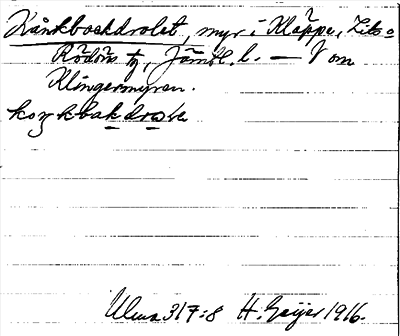 Kånkbackdralet, myr i Kläppe, Lits o
Rödöns tg, Jämtl. l. — V om
Klingermyren.
Ulma 317:8 H. Geijer 1916.